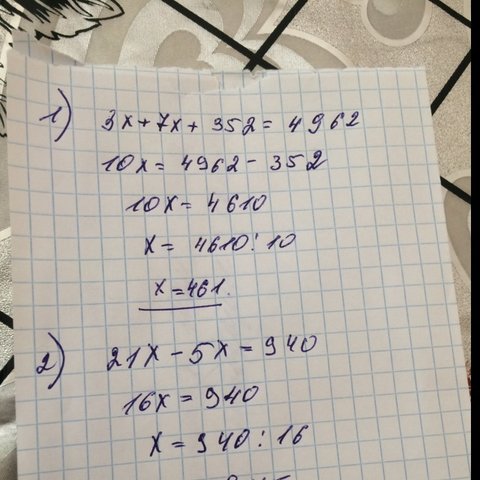 1) 3x+7x+352=4962
10x=4962-352
10x=4610
x=4610:10
x=461.
2) 21x-5x=940
16x=940
x=940:16